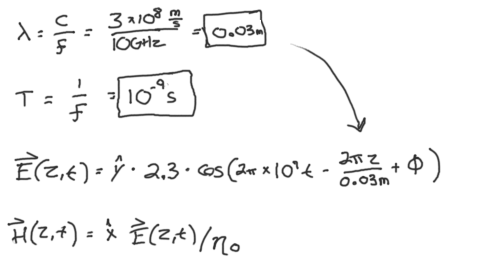 λ = c/f = (3 × 10⁸ m/s)/(10GHz) = 0.03m
T = 1/f = 10⁻⁹ s
E⃗(z,t) = ŷ · 2.3 · cos(2π × 10⁹ t - 2πz/0.03m + Φ)
H⃗(z,t) = x̂ E⃗(z,t)/η₀